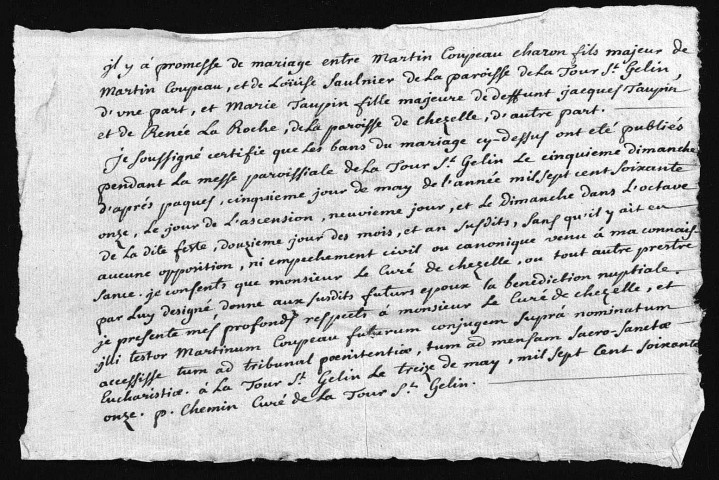 il y à promesse de mariage entre Martin Coupeau charon fils majeur de
Martin Coupeau, et de Loüise Saulnier de la paroisse de la Tour St. Gelin,
d'vne part, et Marie Taupin fille majeure de deffunt jacques Taupin,
et de Renée La Roche, de la paroisse de chezelle, d'autre part.
je soussigné certifie que les bans du mariage cy-dessus ont eté publiés
pendant la messe paroissiale de la Tour St. Gelin le cinquieme dimanche
d'aprés paques, cinquieme jour de may de l'année mil sept cent soixante
onze, le jour de L'ascension, neuvieme jour, et le dimanche dans l'octave
de la dite feste, douzieme jour des mois, et an susdits, sans qu'il y ait eu
aucune opposition, ni empechement civil ou canonique venu à ma connais-
sance. je consents que monsieur le Curé de chezelle, ou tout autre prestre
par luy designé, donne aux susdits futurs epoux la benediction nuptiale.
je presente mes profonds respects à monsieur le Curé de chezelle, et
illi testor Martinum Coupeau futurum conjugem suprà nominatum
accessisse tum ad tribunal pœnitentiæ, tum ad mensam Sacro-Sanctæ
Eucharistiæ. à la Tour St. Gelin le treize de may, mil sept Cent soixante
onze. p. Chemin Curé de la Tour St. Gelin.